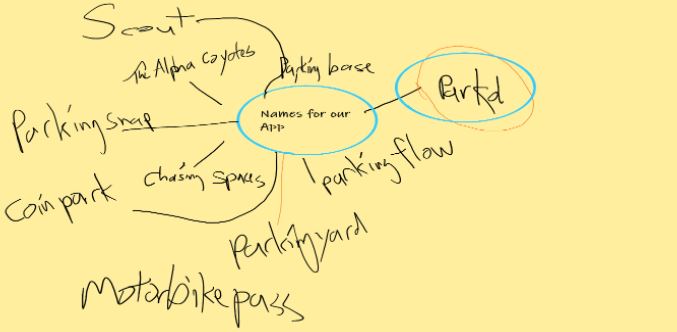 Scout
The Alpha Coyotes
Parking base
Parkd
Names for our
App
Parking snap
parking flow
Chasing spaces
Coin park
Parking yard
Motorbike pass